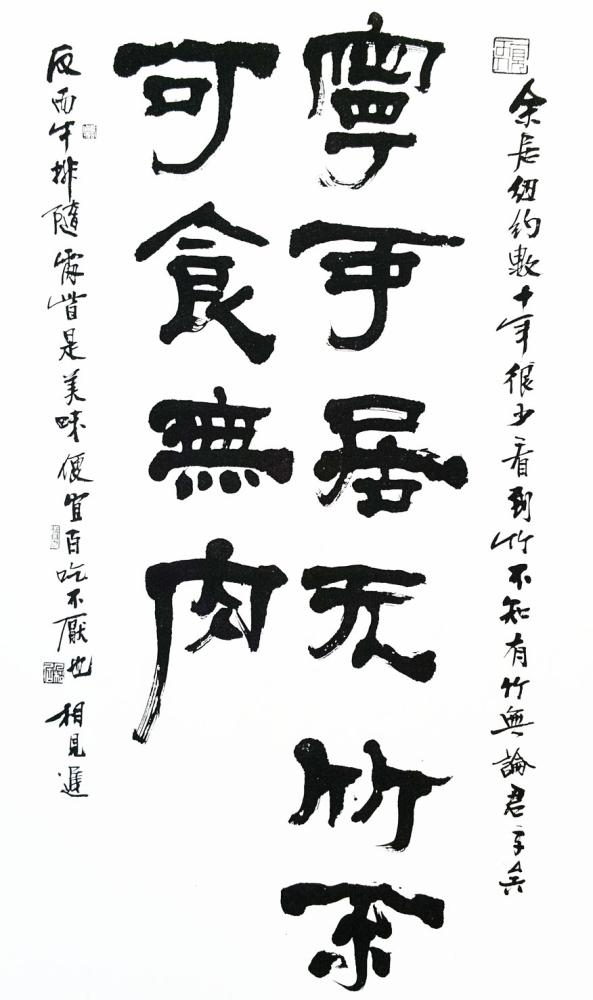 余居紐約數十年很少看到竹不知有竹無論君子矣
寧可居无竹不
可食無肉
反而牛排隨處皆是美味便宜百吃不厭也 相見遲